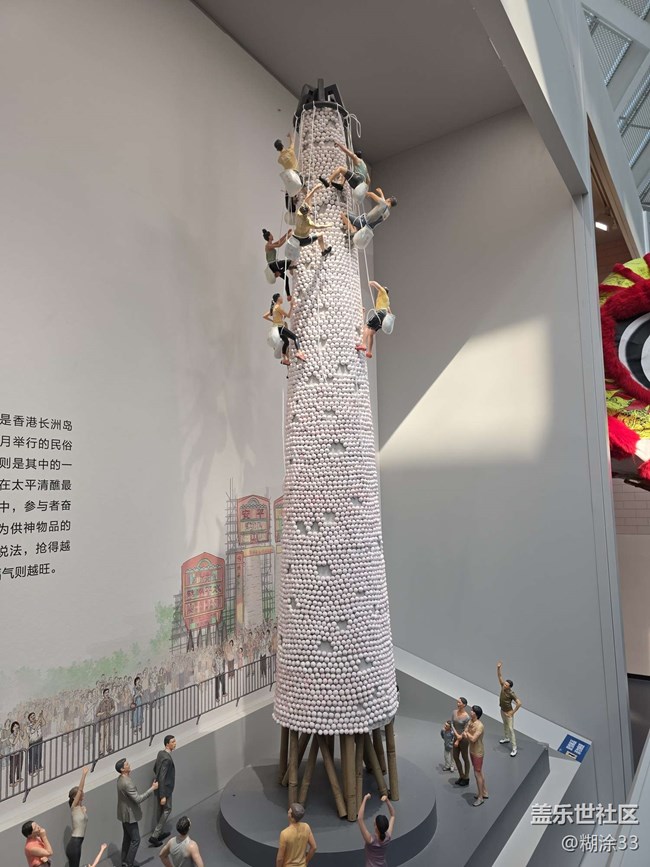 是香港长洲岛
月举行的民俗
则是其中的一
在太平清醮最
中，参与者奋
为供神物品的
说法，抢得越
气则越旺。
安平
盖乐世社区
@糊涂33